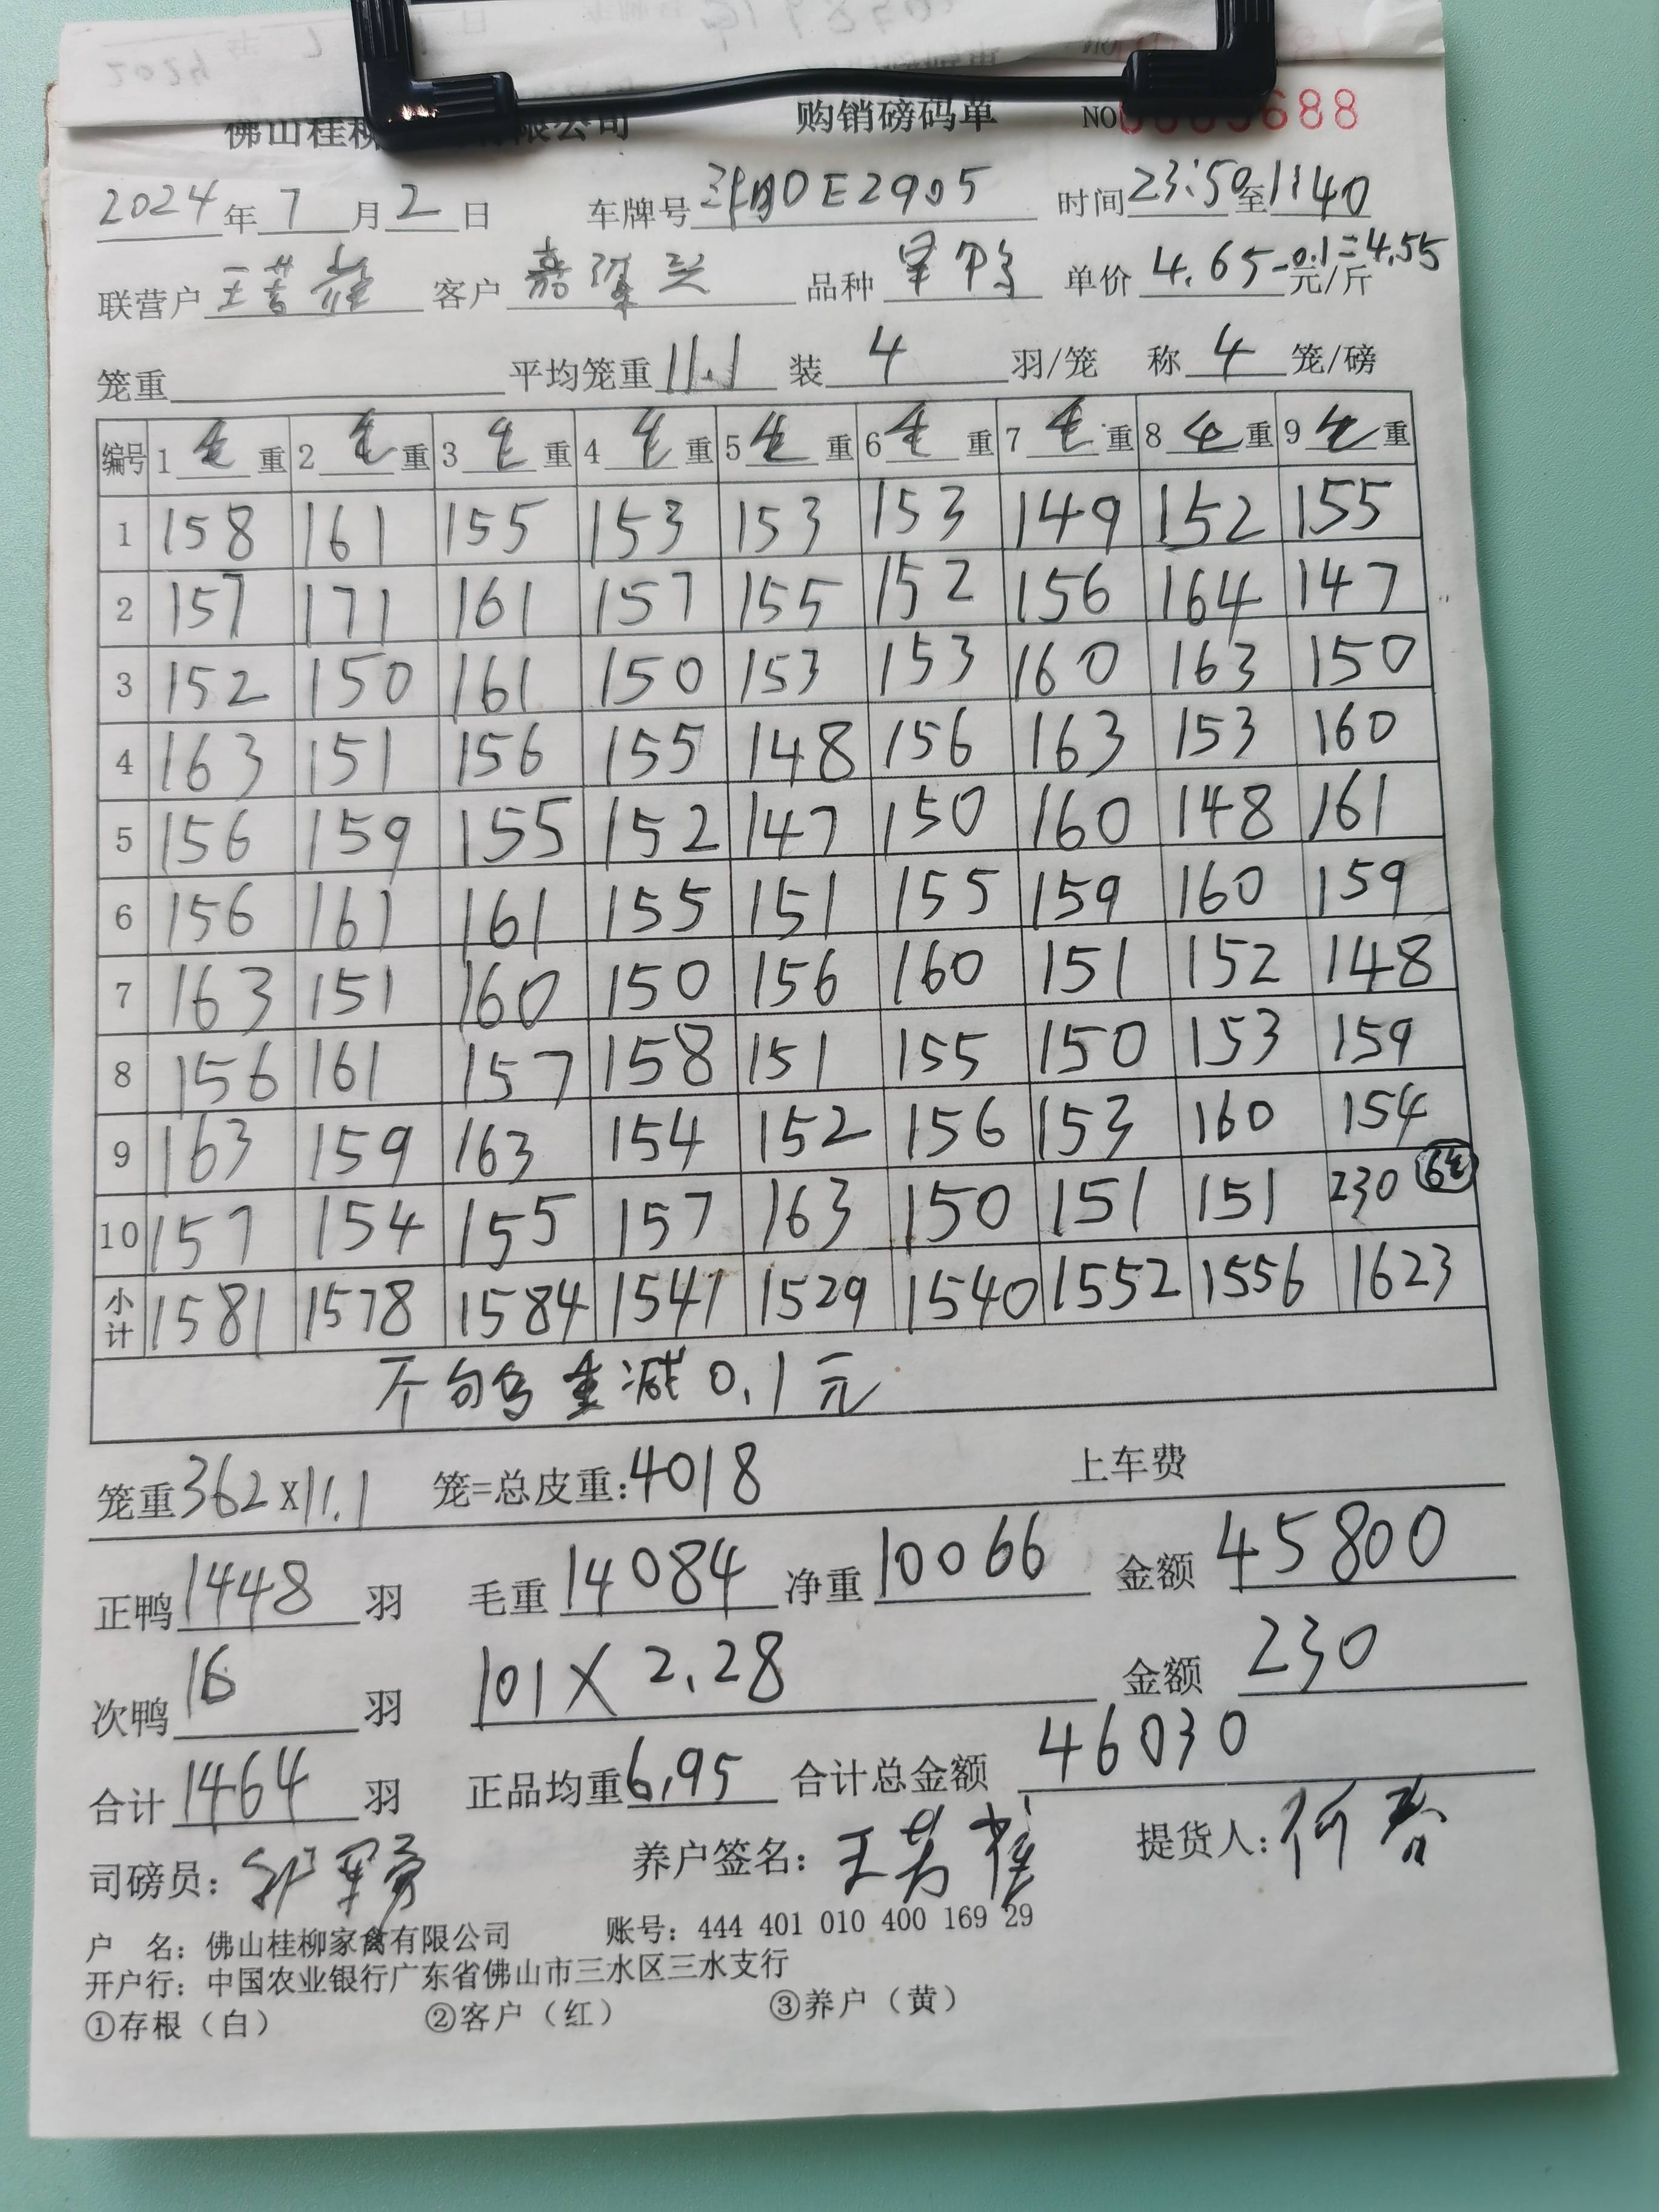 佛山桂柳 有限公司 购销磅码单 NO 688
2024年7月2日 车牌号 E2905 时间23:50至1:40
联营户 王 客户 嘉 兴 品种 单价4.65-0.1=4.55元/斤
笼重 平均笼重11.1 装4羽/笼 称4笼/磅
编号 1毛重 2毛重 3毛重 4毛重 5毛重 6毛重 7毛重 8毛重 9毛重
1 158 161 155 153 153 153 149 152 155
2 157 171 161 157 155 152 156 164 147
3 152 150 161 150 153 153 160 163 150
4 163 151 156 155 148 156 163 153 160
5 156 159 155 152 147 150 160 148 161
6 156 161 161 155 151 155 159 160 159
7 163 151 160 150 156 160 151 152 148
8 156 161 157 158 151 155 150 153 159
9 163 159 163 154 152 156 153 160 154
10 157 154 155 157 163 150 151 151 230 6笼
小计 1581 1578 1584 1541 1529 1540 1552 1556 1623
不 减0.1元
笼重362×11.1 笼=总皮重:4018 上车费
正鸭1448羽 毛重14084 净重10066 金额45800
次鸭16羽 101×2.28 金额230
合计1464羽 正品均重6.95 合计总金额46030
司磅员: 养户签名:王 提货人:何
户 名:佛山桂柳家禽有限公司 账号:444 401 010 400 169 29
开户行:中国农业银行广东省佛山市三水区三水支行
①存根(白) ②客户(红) ③养户(黄)